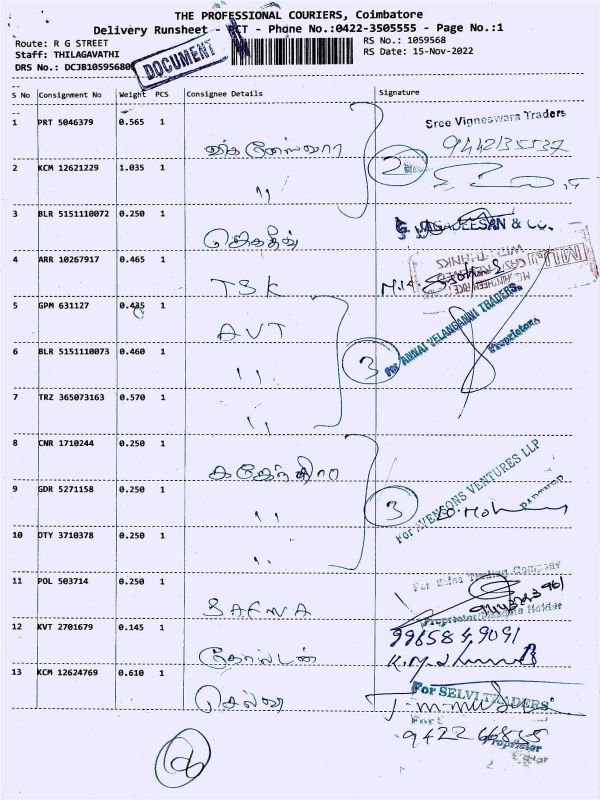 THE PROFESSIONAL COURIERS, Coimbatore
Delivery Runsheet - PCT - Phone No.:0422-3505555 - Page No.:1
Route: R G STREET
RS No.: 1059568
Staff: THILAGAVATHI
RS Date: 15-Nov-2022
DRS No.: DCJB10595680
DOCUMENT
S No Consignment No Weight PCS Consignee Details Signature
1 PRT 5046379 0.565 1
Sree Vigneswara Traders
விக்னேஸ்வரா
2 KCM 12621229 1.035 1
2
,,
3 BLR 5151110072 0.250 1
JAGADEESAN & CO.
ஜெகதீஷ்
4 ARR 10267917 0.465 1
WITH THANKS
TSK
5 GPM 631127 0.435 1
AVT
For ANNAI VELANGANNI TRADERS,
Proprietors
6 BLR 5151110073 0.460 1
3
,,
7 TRZ 365073163 0.570 1
,,
8 CNR 1710244 0.250 1
For AVENSONS VENTURES LLP
PARTNER
9 GDR 5271158 0.250 1
3
,,
10 OTY 3710378 0.250 1
,,
11 POL 503714 0.250 1
For Safas Trading Company
SAFWA
12 KVT 2701679 0.145 1
கோல்டன்
13 KCM 12624769 0.610 1
செல்வி
For SELVI TRADERS
Proprietor